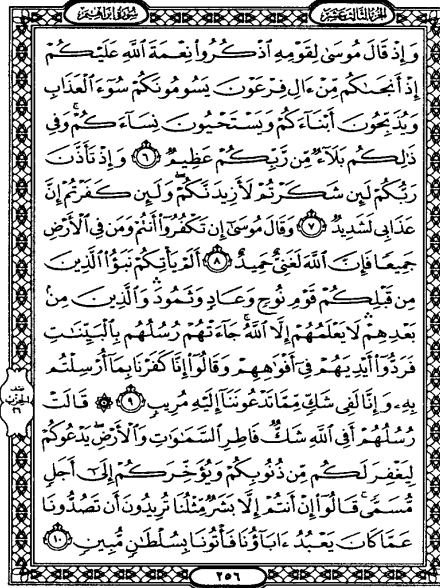 الجزء الثالث عشر
سورة إبراهيم
وَإِذْ قَالَ مُوسَىٰ لِقَوْمِهِ ٱذْكُرُوا۟ نِعْمَةَ ٱللَّهِ عَلَيْكُمْ
إِذْ أَنجَىٰكُم مِّنْ ءَالِ فِرْعَوْنَ يَسُومُونَكُمْ سُوٓءَ ٱلْعَذَابِ
وَيُذَبِّحُونَ أَبْنَآءَكُمْ وَيَسْتَحْيُونَ نِسَآءَكُمْ ۚ وَفِى
ذَٰلِكُم بَلَآءٌ مِّن رَّبِّكُمْ عَظِيمٌ ٦ وَإِذْ تَأَذَّنَ
رَبُّكُمْ لَئِن شَكَرْتُمْ لَأَزِيدَنَّكُمْ ۖ وَلَئِن كَفَرْتُمْ إِنَّ
عَذَابِى لَشَدِيدٌ ٧ وَقَالَ مُوسَىٰٓ إِن تَكْفُرُوٓا۟ أَنتُمْ وَمَن فِى ٱلْأَرْضِ
جَمِيعًا فَإِنَّ ٱللَّهَ لَغَنِىٌّ حَمِيدٌ ٨ أَلَمْ يَأْتِكُمْ نَبَؤُا۟ ٱلَّذِينَ
مِن قَبْلِكُمْ قَوْمِ نُوحٍ وَعَادٍ وَثَمُودَ ۛ وَٱلَّذِينَ مِنۢ
بَعْدِهِمْ ۛ لَا يَعْلَمُهُمْ إِلَّا ٱللَّهُ ۚ جَآءَتْهُمْ رُسُلُهُم بِٱلْبَيِّنَٰتِ
فَرَدُّوٓا۟ أَيْدِيَهُمْ فِىٓ أَفْوَٰهِهِمْ وَقَالُوٓا۟ إِنَّا كَفَرْنَا بِمَآ أُرْسِلْتُم
بِهِۦ وَإِنَّا لَفِى شَكٍّ مِّمَّا تَدْعُونَنَآ إِلَيْهِ مُرِيبٍ ٩ ۞ قَالَتْ
رُسُلُهُمْ أَفِى ٱللَّهِ شَكٌّ فَاطِرِ ٱلسَّمَٰوَٰتِ وَٱلْأَرْضِ ۖ يَدْعُوكُمْ
لِيَغْفِرَ لَكُم مِّن ذُنُوبِكُمْ وَيُؤَخِّرَكُمْ إِلَىٰٓ أَجَلٍ
مُّسَمًّى ۚ قَالُوٓا۟ إِنْ أَنتُمْ إِلَّا بَشَرٌ مِّثْلُنَا تُرِيدُونَ أَن تَصُدُّونَا
عَمَّا كَانَ يَعْبُدُ ءَابَآؤُنَا فَأْتُونَا بِسُلْطَٰنٍ مُّبِينٍ ١٠
٢٥٦
الحزب
٢٦